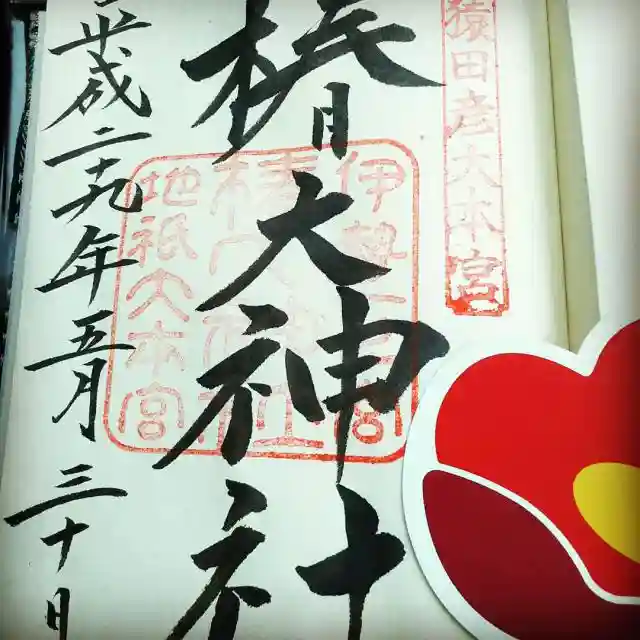 猿田彦大本宮
椿大神社
伊勢一之宮
椿大神社
地祇大本宮
平成二十九年五月三十日